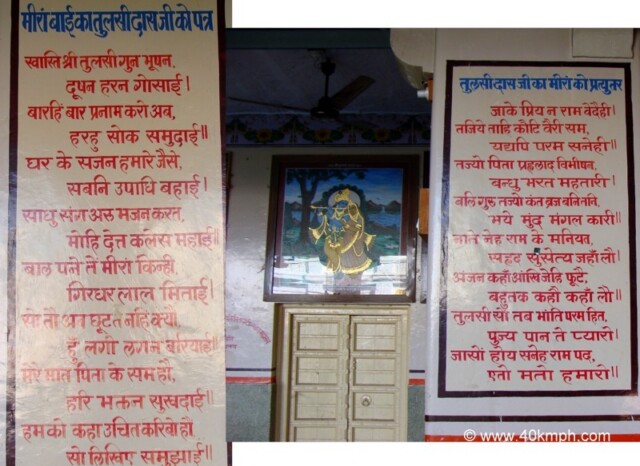 मीरां बाई का तुलसी दास जी को पत्र
स्वास्ति श्री तुलसी गुन भूषन,
दूषन हरन गोसाई।
बारहिं बार प्रनाम करौं अब,
हरहु सोक समुदाई॥
घर के सजन हमारे जैसे,
सबनि उपाधि बहाई।
साधु संग अरु भजन करत,
मोहि देत कलेस महाई॥
बाल पने तै मीरां किन्ही,
गिरधर लाल मिताई।
सो तौ अब छूटत नहि क्यो,
हूँ लगी लगन बरियाई॥
मेरे मात पिता के सम हौ,
हरि भक्तन सुखदाई॥
हम को कहा उचित करिवो हौ
सो लिखिए समुझाई॥
तुलसी दास जी का मीरां को प्रत्युतर
जाके प्रिय न राम वैदेही।
तजिये ताहि कोटि वैरी सम,
यद्यपि परम सनेही॥
तज्यो पिता प्रहलाद विभीषन,
बन्धु भरत महतारी।
बलि गुरु तज्यौ कंत ब्रज बनितनि,
भये मुंद मंगल कारी॥
नाते नेह राम के मनियत,
सुहृद सुसेत्य जहाँ लौ।
अंजन कहाँ आँखि जेहि फूटै,
बहुतक कहौं कहाँ लौ॥
तुलसी सो तब भांति परम हित,
पूज्य पान ते प्यारो।
जासों होय सनेह राम पद,
एतो मतो हमारो॥
© www.40kmph.com